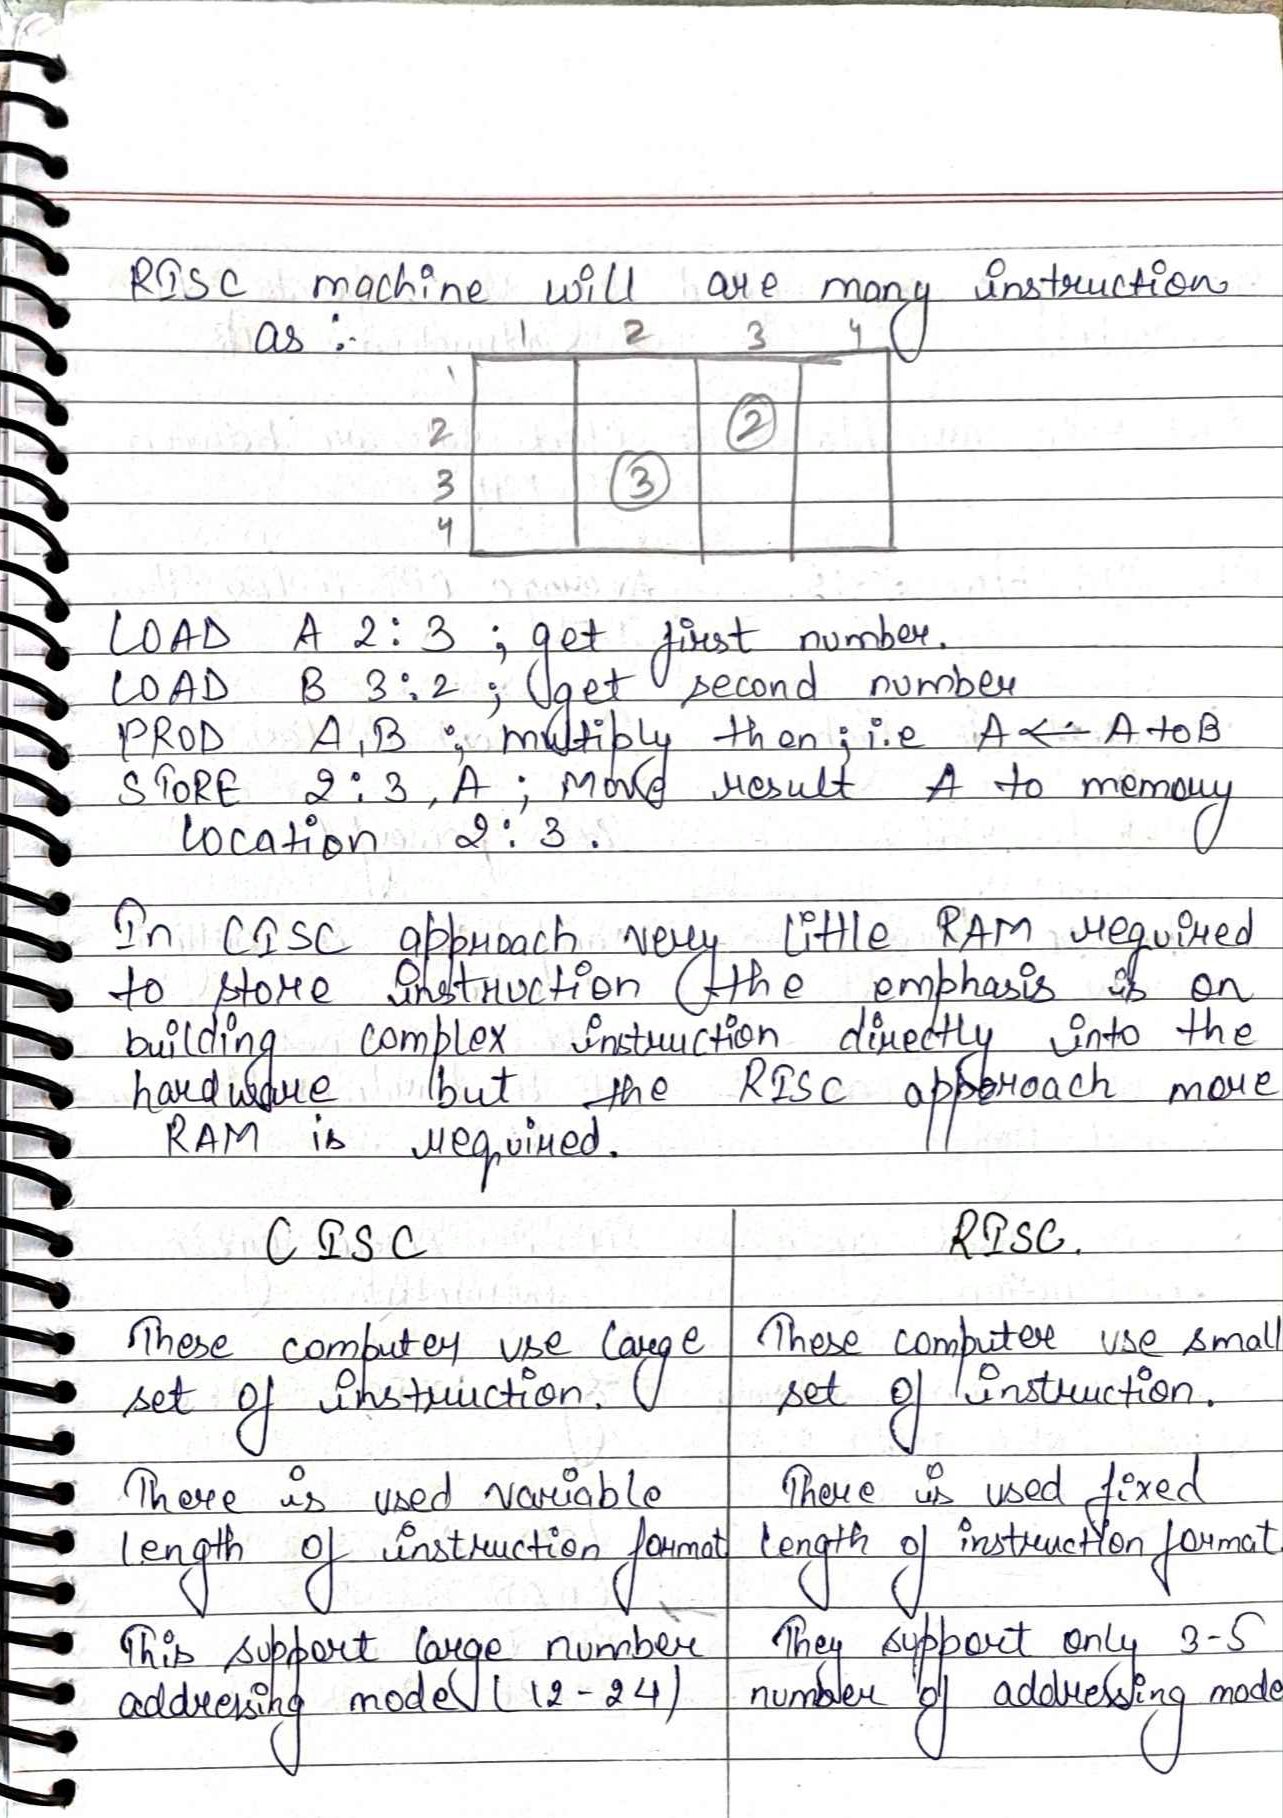 RISC machine will are many instruction
as :-
1 2 3 4
1
2 2
3 3
4
LOAD A 2:3 ; get first number.
LOAD B 3:2 ; get second number
PROD A,B ; multiply then ; i.e A <- A to B
STORE 2:3, A ; Move result A to memory
location 2:3.
In CISC approach very little RAM required
to store instruction the emphasis is on
building complex instruction directly into the
hardware but the RISC approach more
RAM is required.
CISC RISC.
These computer use large These computer use small
set of instruction. set of instruction.
There is used variable There is used fixed
length of instruction format length of instruction format
This support large number They support only 3-5
addressing mode (12-24) number of addressing mode